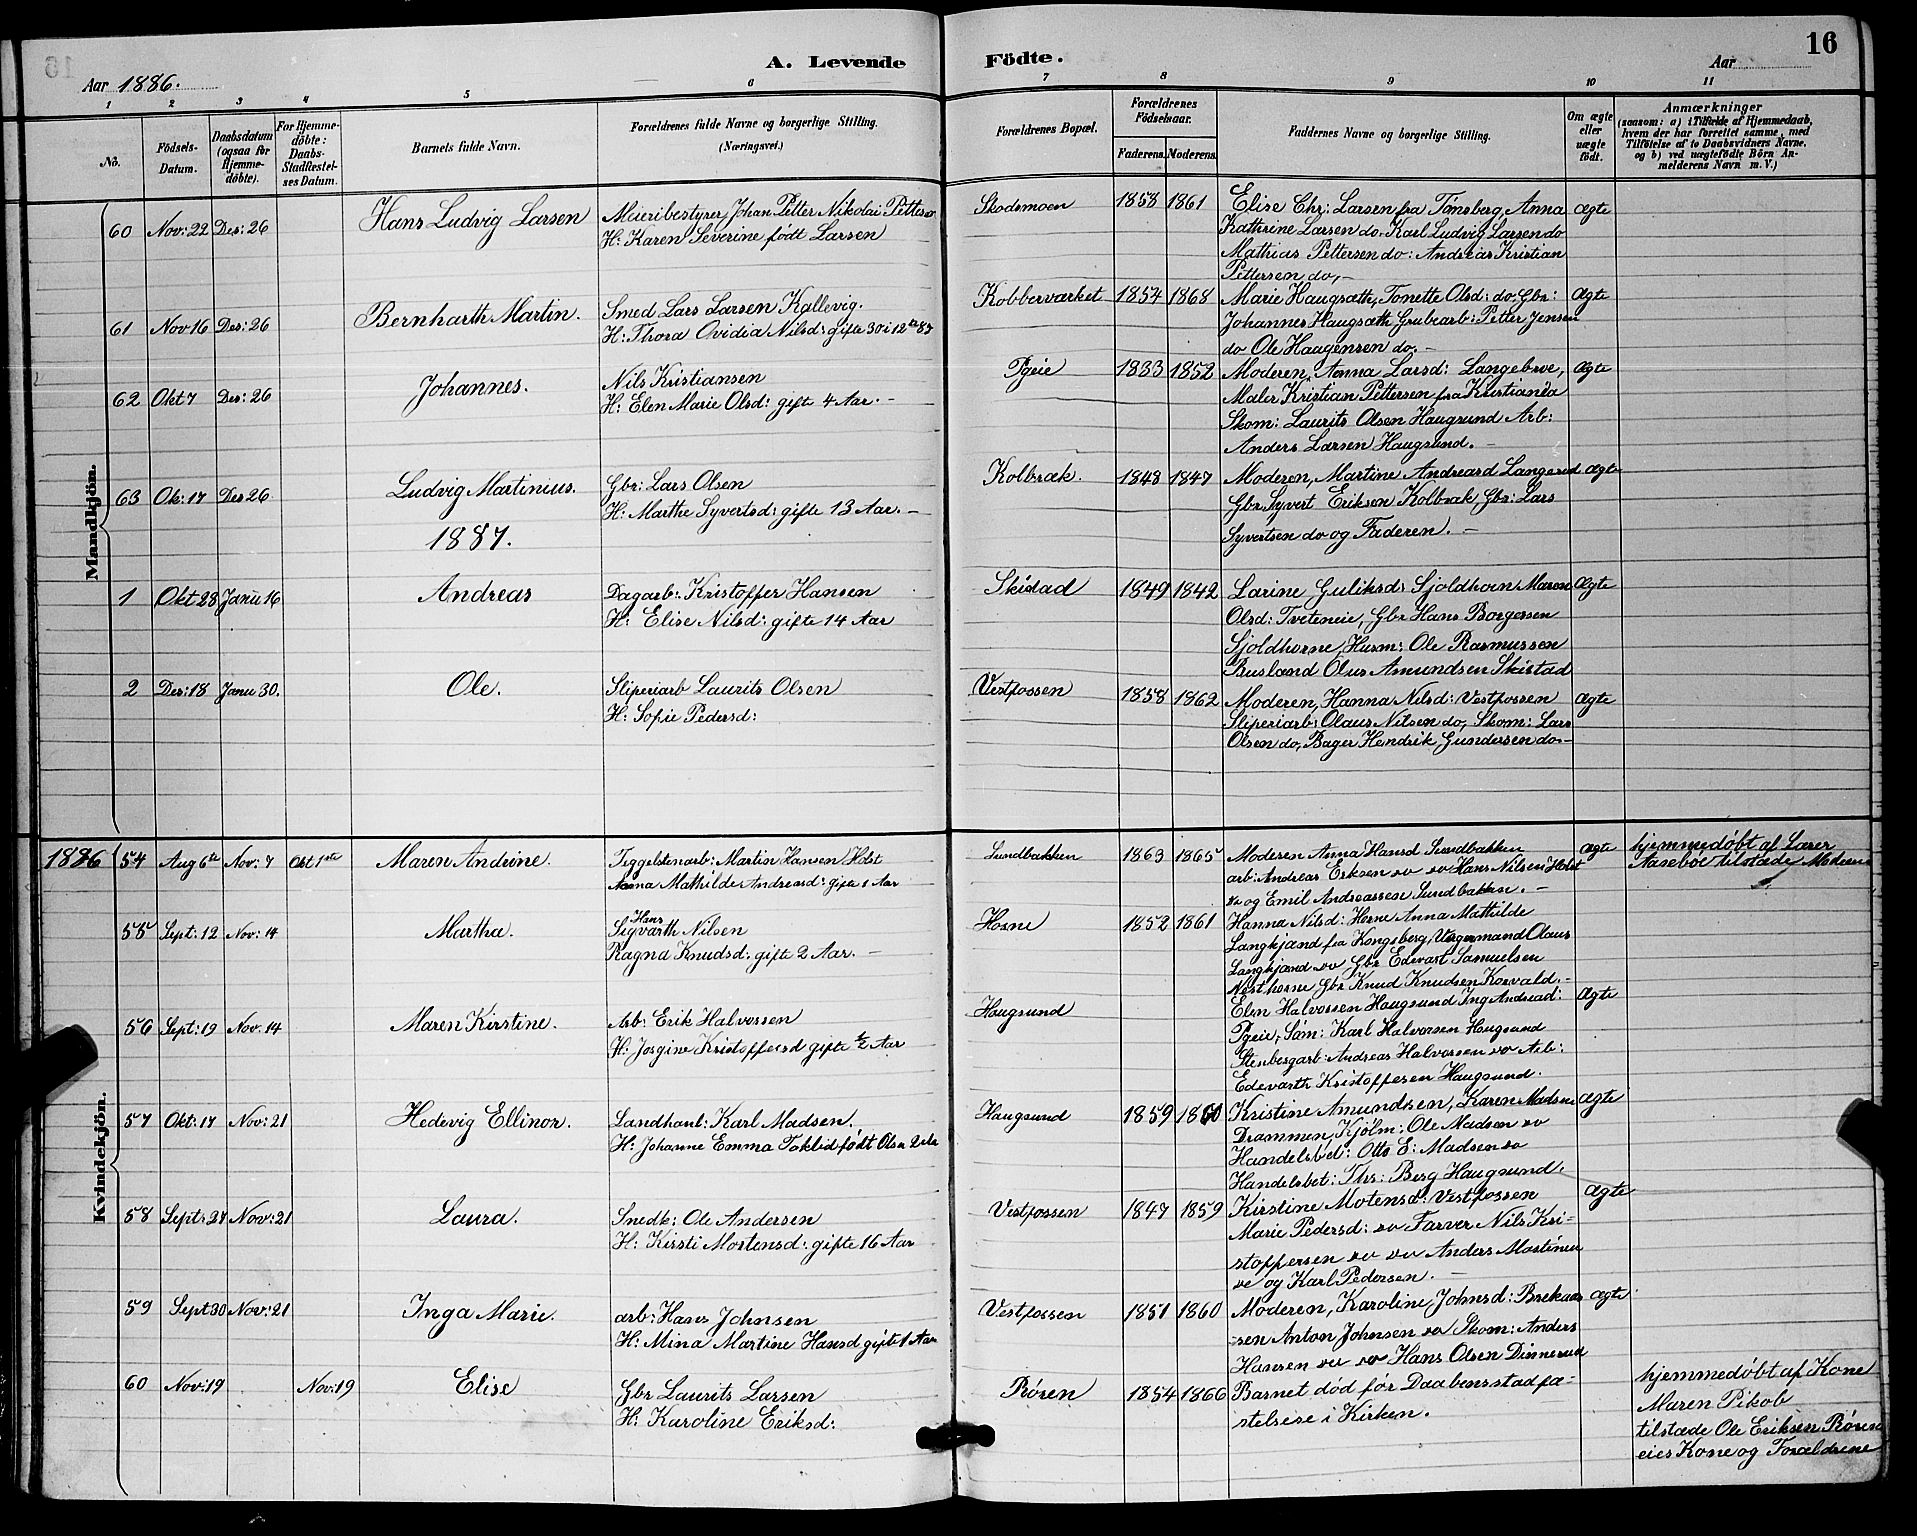 16
A. Levende Födte.
Aar 1886.
Aar
1 2 3 4 5 6 7 8 9 10 11
No.
Födsels-Datum.
Daabsdatum (ogsaa for Hjemme-döbte).
For Hjemme-döbte: Daabs-Stadfæstel-ses Datum.
Barnets fulde Navn.
Forældrenes fulde Navne og borgerlige Stilling.
(Næringsvei.)
Forældrenes Bopæl.
Forældrenes Födselsaar.
Faderens. Moderens.
Faddernes Navne og borgerlige Stilling.
Om ægte eller uægte födt.
Anmærkninger
(saasom: a) i Tilfælde af Hjemmedaab, hvem der har forrettet samme, med Tilföielse af to Daabsvidners Navne, og b) ved uægtefödte Börn An-melderens Navn m. V.)
Mandkjön.
60 Nov: 22 Des: 26 Hans Ludvig Larsen
Meieribestyrer Johan Petter Nikolai Petters
H: Karen Severine født Larsen
Skodsmoen 1858 1861
Elise Chr: Larsen fra Tönsberg, Anna
Kathrine Larsen do. Karl Ludvig Larsen do
Mathias Pettersen do: Andreas Kristian
Pettersen do,-
Ægte
61 Nov 16 Des: 26 Bernharth Martin.
Smed Lars Larsen Kallevig.
H: Thora Ovidia Nilsd: gifte 30 i 12te 85
Kobberværket 1854 1868
Marie Haugsæth, Tonette Olsd: do Gbr:
Johannes Haugsæth Grubearb: Petter Jensen
do Ole Haugensen do.-
Ægte
62 Okt 7 Des: 26 Johannes.
Nils Kristiansen
H: Elen Marie Olsd: gifte 4 Aar.-
Pgeie 1833 1852
Moderen, Anna Larsd: Langebroe,
Maler Kristian Pettersen fra Kristiania
Skom: Laurits Olsen Haugsund Arb:
Anders Larsen Haugsund.-
Ægte
63 Ok: 17 Des 26 Ludvig Martinius.
Gbr: Lars Olsen
H: Marthe Syvertsd: gifte 13 Aar.-
Kolbræk. 1848 1847
Moderen, Martine Andreasd Langerud
Gbr Syvert Eriksen Kolbræk, Gbr: Lars
Syvertsen do og Faderen.-
Ægte
1887.
1 Okt 28 Janu 16 Andreas
Dagarb: Kristoffer Hansen
H: Elise Nilsd: gifte 14 Aar
Skistad 1849 1842
Larine Guliksd: Sjoldhorn Maren
Olsd: Tveteneie, Gbr Hans Borgersen
Sjoldhorne, Husm: Ole Rasmussen
Busland Olus Amundsen Skistad
Ægte
2 Des: 18 Janu 30. Ole.
Sliperiarb Laurits Olsen
H: Sofie Pedersd:
Vestfossen 1858 1862
Moderen, Hanna Nilsd: Vestfossen
Sliperiarb: Olaus Nilsen do, Skom: Lars
Olsen do, Bager Hendrik Gundersen do-
Ægte
Kvindekjön.
1886
54 Aug 6te Nov: 7 Okt 1ste Maren Andrine.
Teggelstenarb: Martin Hansen Holst
Anna Mathilde Andreasd: gifte 1 Aar
Sundbakken 1863 1865
Moderen Anna Hansd Sundbakken
arb: Andreas Eriksen do do Hans Nilsen Holst
do og Emil Andreassen Sundbakken.-
Ægte
hjemmedøbt af Lærer
Aasebøe tilstæde Moderen
55 Sept: 12 Nov: 14 Martha.
Hans
Sigvarth Nilsen
Ragna Knudsd: gifte 2 Aar.-
Horne 1852 1861
Hanna Nilsd: Horne Anna Mathilde
Langkjænd fra Kongsberg, Ungermand Olaus
Langkjænd do Gbr Edevart Samuelsen
Vesthorne Gbr Knud Knudsen Korvald.-
56 Sept: 19 Nov. 14 Maren Kirstine.
Arb: Erik Halvorsen
H: Josgine Kristoffersd gifte ½ Aar
Haugsund
Elen Halvorsen Haugsund Ing Andread:
Pgeie, Søm: Karl Halvorsen Haugsund
Stenbergarb: Andreas Halvorsen do Arb:
Edevarth Kristoffersen Haugsund.
Ægte
57 Okt: 17 Nov: 21 Hedevig Ellinor.
Landhanl: Karl Madsen.
H: Johanne Emma Fokled født Olsn 2
Haugsund 1859 1860
Kristine Amundsen, Karen Madsen
Drammen, Kjölm: Ole Madsen do
Handelsbet: Otto E: Madsen do
Handelsbet: Thr: Berg Haugsund.
Ægte
58 Sept: 27 Nov: 21 Laura.
Snedk: Ole Andersen
H: Kirsti Mortensd: gifte 16 Aar
Vestfossen 1847 1859
Kirstine Motensd: Vestfossen
Marie Pedersd: do Farver Nils Kri=
stoffersen do do Anders Mortinsen
do og Karl Pedersen.-
Ægte
59 Sept 30 Nov: 21 Inga Marie.
arb: Hans Johnsen
H: Mina Martine Hansd gifte 1 Aar
Vestfossen 1851 1860
Moderen, Karoline Johnsd: Brekaas
sen Anton Johnsen do Skom: Anders
Hansen do do Hans Olsen Dinnerud
Ægte
60 Nov: 19 Nov: 19 Elise
Gbr Laurits Larsen
H: Karoline Eriksd:
Røren 1854 1866
Barnet död för Daabens stadfæ=
stelsese i Kirken.
hjemmedøbt af Kone
Maren Pikob
tilstæde Ole Eriksen Røren
eies Kone og Forældrene